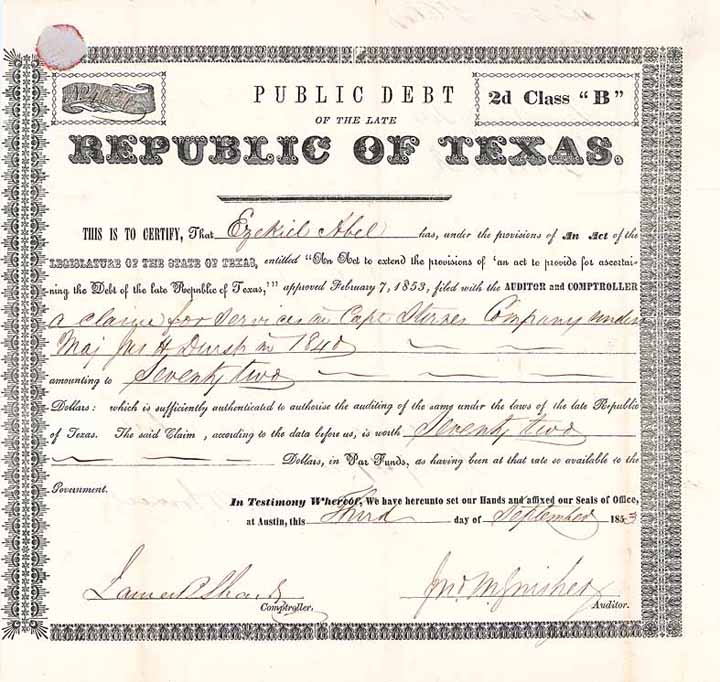 PUBLIC DEBT
2d Class "B"
OF THE LATE
REPUBLIC OF TEXAS.
THIS IS TO CERTIFY, That Ezekiel Abel has, under the provisions of An Act of the
LEGISLATURE OF THE STATE OF TEXAS, entitled "An Act to extend the provisions of 'an act to provide for ascertain-
ing the Debt of the late Republic of Texas,'" approved February 7, 1853, filed with the AUDITOR and COMPTROLLER
a claim for Services in Capt Company under
Maj Jas H Durst in 1840
amounting to Seventy two
Dollars: which is sufficiently authenticated to authorise the auditing of the same under the laws of the late Republic
of Texas. The said Claim, according to the data before us, is worth Seventy two
Dollars, in Par Funds, as having been at that rate so available to the
Government.
In Testimony Whereof, We have hereunto set our Hands and affixed our Seals of Office,
at Austin, this Third day of September 1853
James B Shaw
Comptroller.
Auditor.